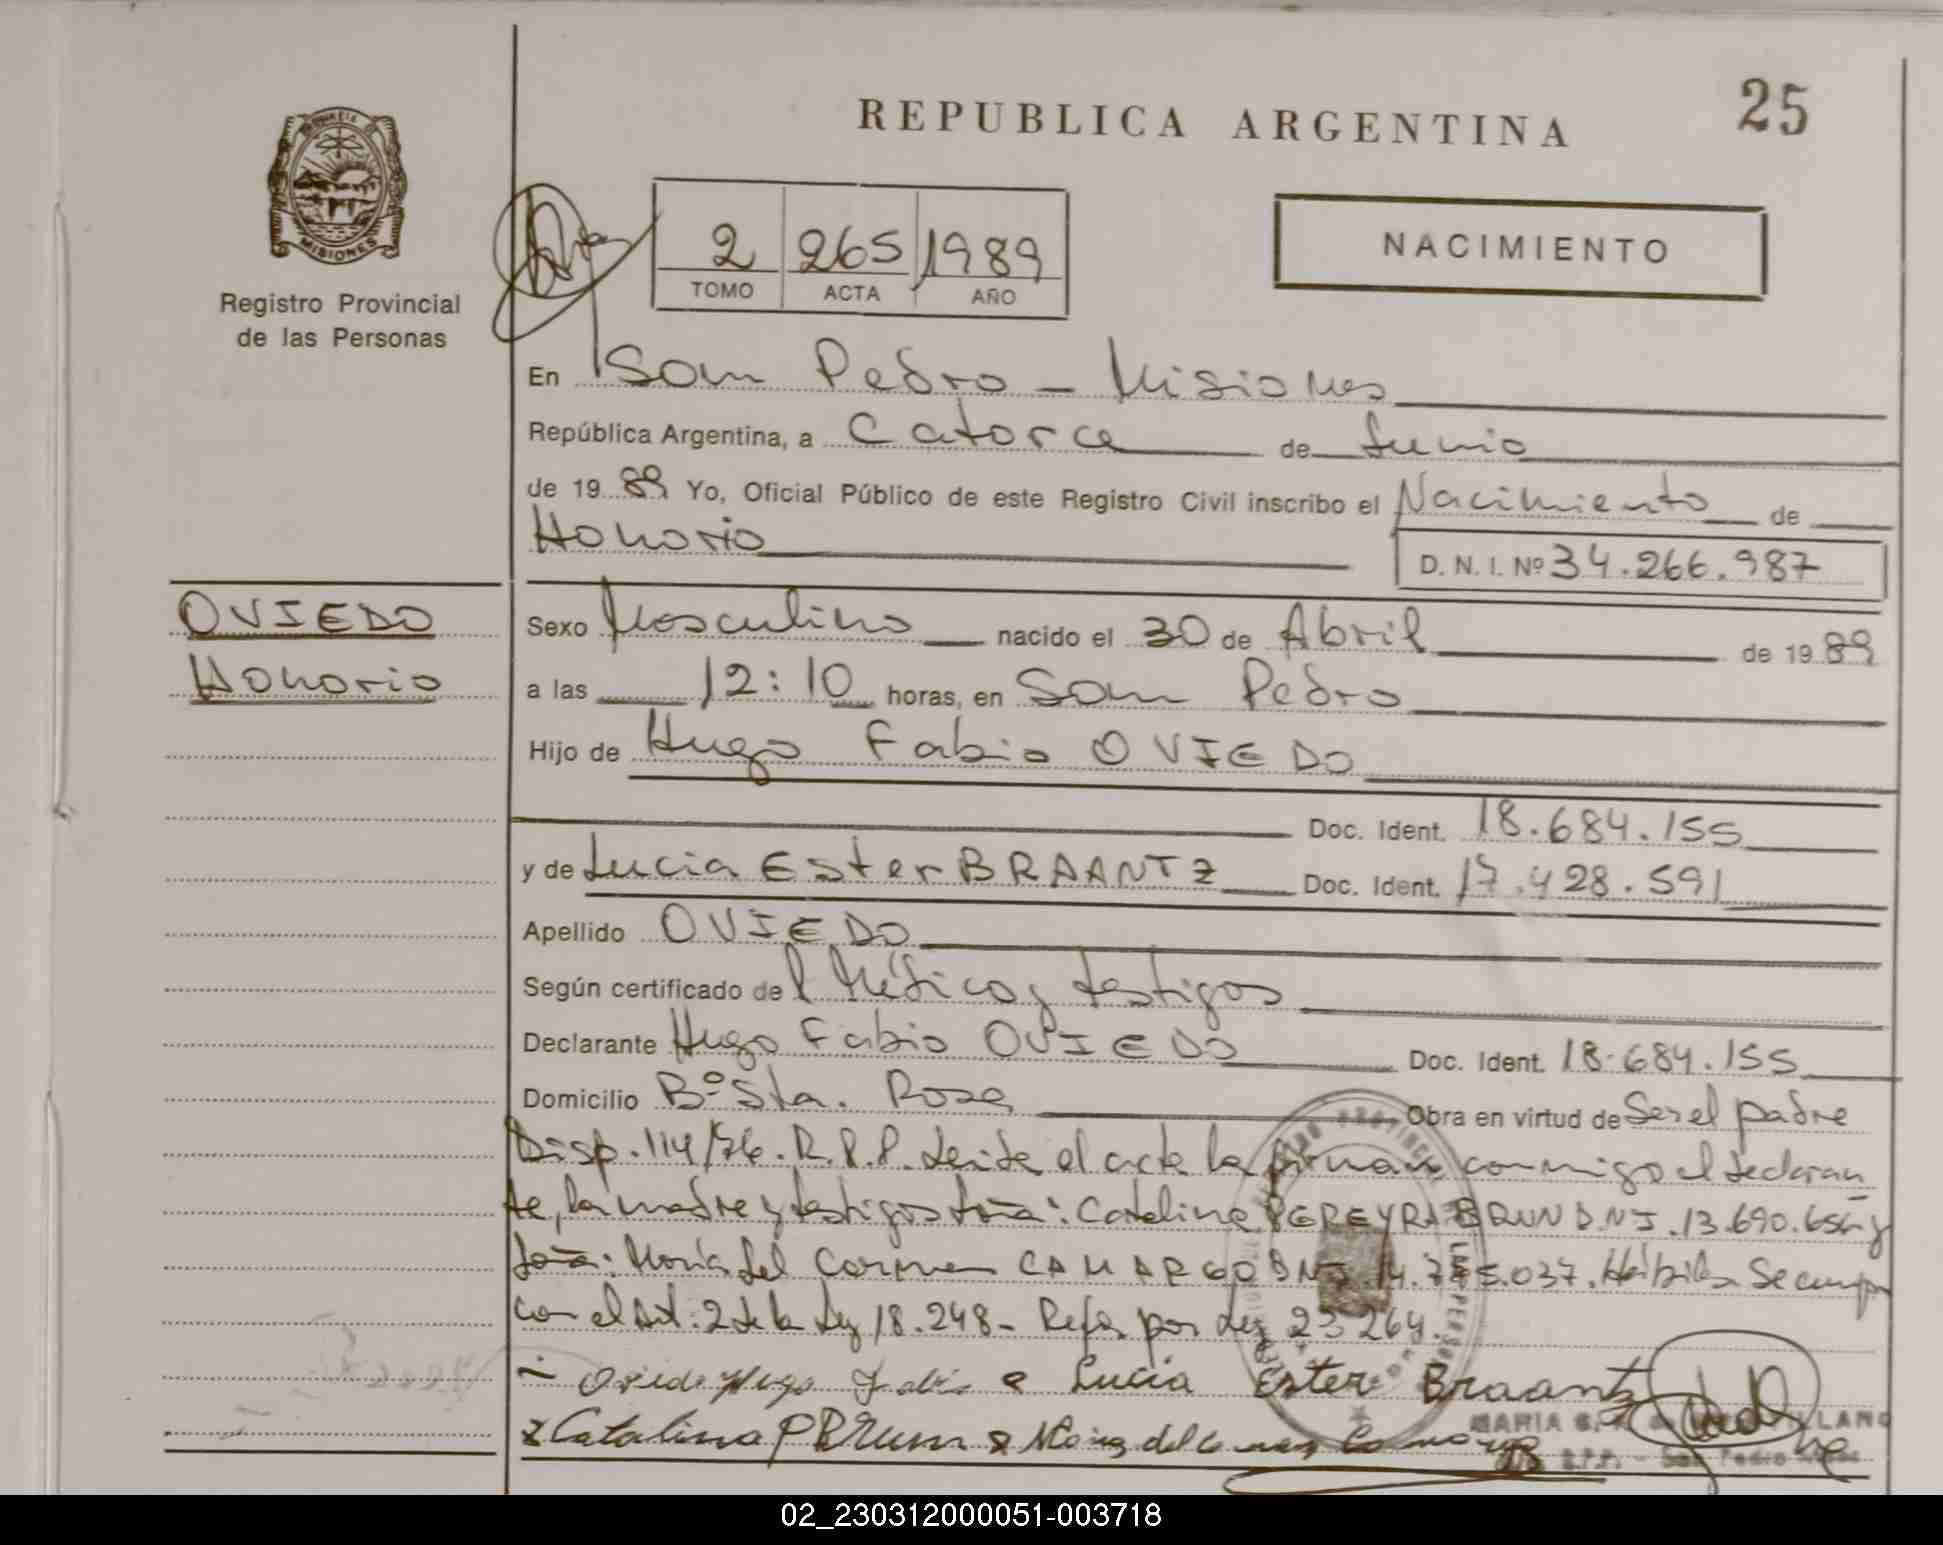 25
REPUBLICA ARGENTINA
MISIONES
Registro Provincial
de las Personas
2 265 1989
TOMO ACTA AÑO
NACIMIENTO
En San Pedro - Misiones
República Argentina, a Catorce de Junio
de 1989 Yo, Oficial Público de este Registro Civil inscribo el Nacimiento de
Honorio
D. N. I. Nº 34.266.987
OVIEDO
Honorio
Sexo Masculino nacido el 30 de Abril de 1989
a las 12:10 horas, en San Pedro
Hijo de Hugo Fabio OVIEDO
Doc. Ident. 18.684.155
y de Lucia Ester BRAANTZ Doc. Ident. 17.428.591
Apellido OVIEDO
Según certificado del Médico y testigos
Declarante Hugo Fabio OVIEDO Doc. Ident. 18.684.155
Domicilio Bº Sta. Rosa Obra en virtud de Ser el padre
Disp. 114/76. R.P.P. Leida el acta la firman conmigo el declaran
te, la madre y testigos Doña: Catalina PEREYRA BRUN D.N.I. 13.690.656 y
Doña: María del Carmen CAMARGO DNI 14.785.037. Hábiles Se cumple
con el Art: 2 de la Ley 18.248 - Refor por Ley 23264.
Oviedo Hugo Fabio Lucia Ester Braantz
Catalina P BRun Maria del Carmen Camargo
MARIA
R.P.P. - San Pedro
02_230312000051-003718